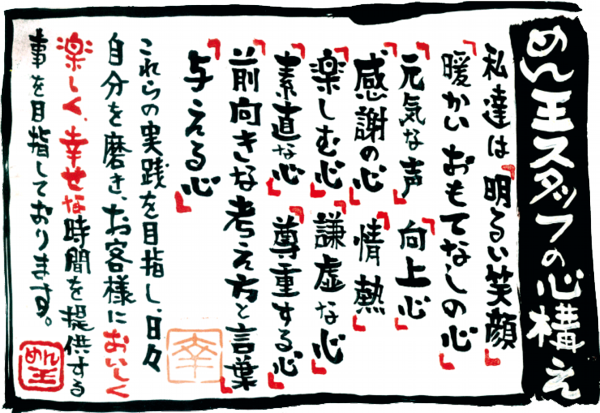 めん王スタッフの心構え
私達は「明るい笑顔」
「暖かいおもてなしの心」
「元気な声」「向上心」
「感謝の心」「情熱」
「楽しむ心」「謙虚な心」
「素直な心」「尊重する心」
「前向きな考え方と言葉」
「与える心」
これらの実践を目指し、日々
自分を磨き、お客様においしく
楽しく、幸せな時間を提供する
事を目指しております。
幸
めん王